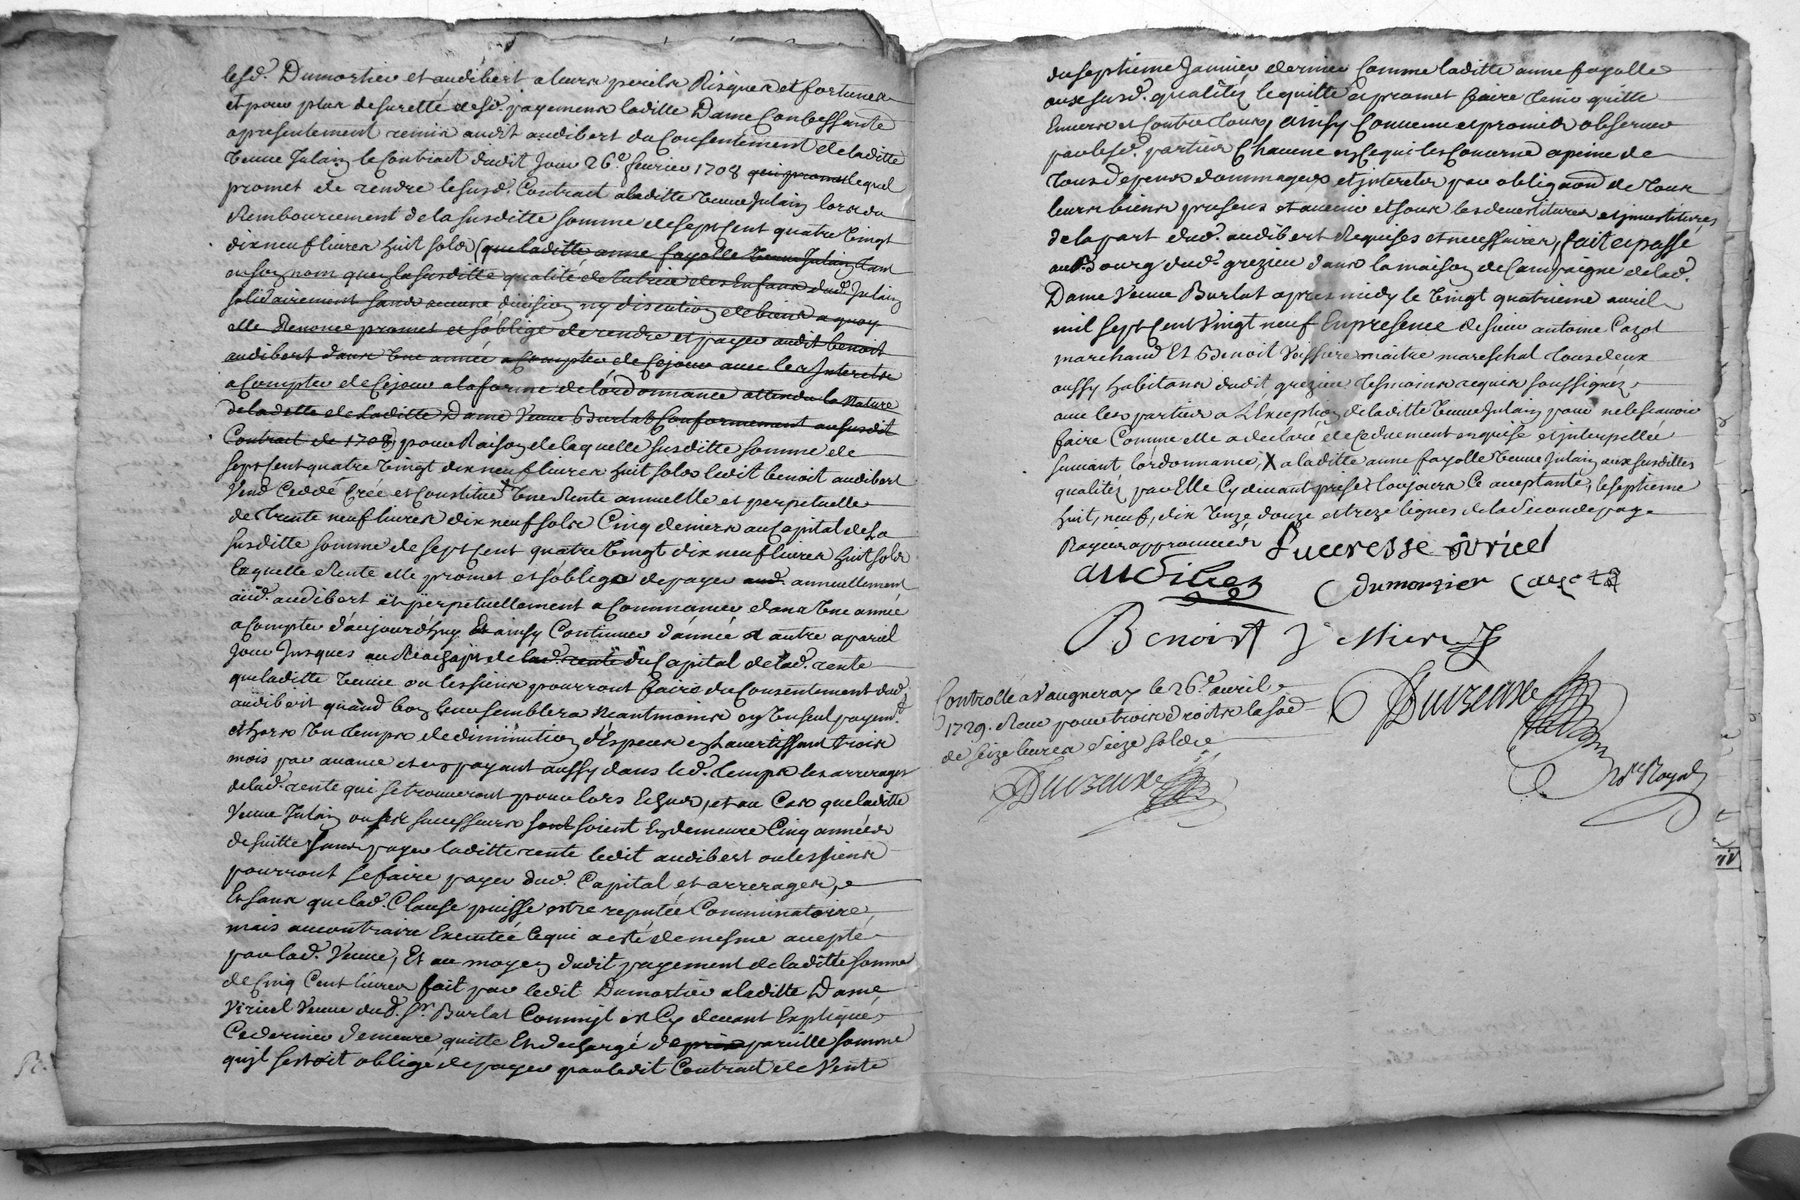 lesd. Dumortier et audibert a leurs perils Risques et fortunes
et pour plus de sureté desd. payemens laditte Dame Confessante
a presentement remis audit audibert du Consentement de laditte
veuve Julain le Contract dudit Jour 26e fevrier 1708 qui promet lequel
promet de rendre le susd. Contract a laditte veuve Julain lors du
Remboursement de la susditte somme de sept cent quatre vingt
dix neuf livres huit sols (que laditte anne fayolle veuve Julain tant
en son nom qu'en la susditte qualité de tutrice des Enfans dud. Julain
solidairement sans aucune division ny discution de biens a quoy
elle Renonce promet et s'oblige de rendre et payer audit benoit
audibert dans une année a Compter de Cejour avec les Interets
a Compter de Cejour a la forme de l'ordonnance attendu la Nature
de la dette de Laditte Dame veuve Burlat Conformement au susdit
Contract de 1708) pour Raison de laquelle susditte somme de
sept cent quatre vingt dix neuf livres huit sols ledit benoit audibert
vend Cede Crée et Constitue une Rente annuelle et perpetuelle
de trente neuf livres dix neuf sols Cinq deniers au Capital de La
susditte somme de sept Cent quatre vingt dix neuf livres huit sols
laquelle Rente elle promet et s'oblige de payer aud. annuellement
aud. audibert et perpetuellement a Commancer dans une année
a Compter daujourd'huy Et ainsy Continuer d'année et autre a pareil
Jour Jusques au Reachapt de lad. rente du Capital de lad. rente
que laditte veuve ou les siens pourront faire du Consentement dud.
audibert quand bon leur semblera Neantmoins en un seul payemt.
et hors un temps de diminution d'Especes en l'avertissant trois
mois par avance et en payant aussy dans led. temps les arrerages
de lad. rente qui se trouveront pour lors Echus, et au Cas que laditte
veuve Julain ou ses successeurs sont soient En demeure Cinq années
de suitte sans payer laditte rente ledit audibert ou les siens
pourront se faire payer dud. Capital et arrerages,
Et sans que lad. Clause puisse estre reputée Comminatoire,
mais au contraire Executée ce qui a esté de mesme accepté
par lad. veuve, Et au moyen dudit payement de laditte somme
de Cinq Cent livres fait par ledit Dumortier a laditte Dame
Viricel veuve dud. Sr. Burlat Comme il est Cy devant Expliqué,
Ce dernier demeure quitte Et dechargé de prix pareille somme
qu'il s'estoit obligé de payer par ledit Contract de vente
du septieme Janvier dernier Comme laditte anne fayolle
aux susd. qualités le quitte et promet faire tenir quitte
Envers et Contre tous, ainsy Convenu et promis observer
par lesd. parties Chacune en ce qui les Concerne a peine de
tous depens dommages et interets par obligaon de tous
leurs biens presens et avenir et sous les devestitures et investitures
de la part dud. audibert Requises et necessaires, fait et passé
au Bourg dud. grezieu dans la maison de Campaigne de lad.
Dame veuve Burlat apres midy le vingt quatrieme avril
mil sept Cent vingt neuf En presence de sieur antoine Cazot
marchand Et Benoit Voissiere maitre mareschal tous deux
aussy habitans dudit grezieu tesmoins requis soussignez
avec les parties a L'Exception de laditte veuve Julain pour ne le sçavoir
faire Comme elle a declaré de ce duement enquise et interpellée
suivant l'ordonnance, X a laditte anne fayolle veuve Julain aux susdittes
qualités par Elle Cy devant prise toujours Ce aceptante, le septieme
huit, neuf, dix unze douze et treze lignes de la seconde page
Rayées approuvées Lucresse Viricel
audibert Dumortier
Benoist
Controllé a Vaugneray le 26e. avril
1729. Reçu pour trois droits la so.e
de seize livres seize sols